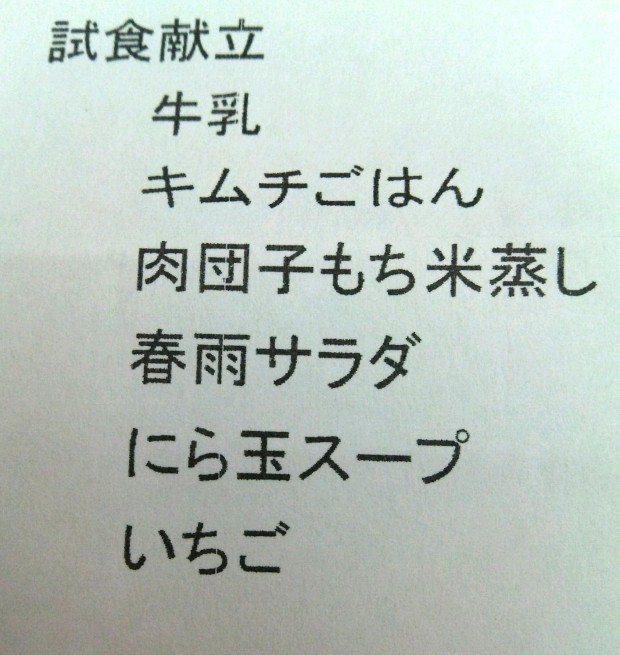 試食献立
牛乳
キムチごはん
肉団子もち米蒸し
春雨サラダ
にら玉スープ
いちご